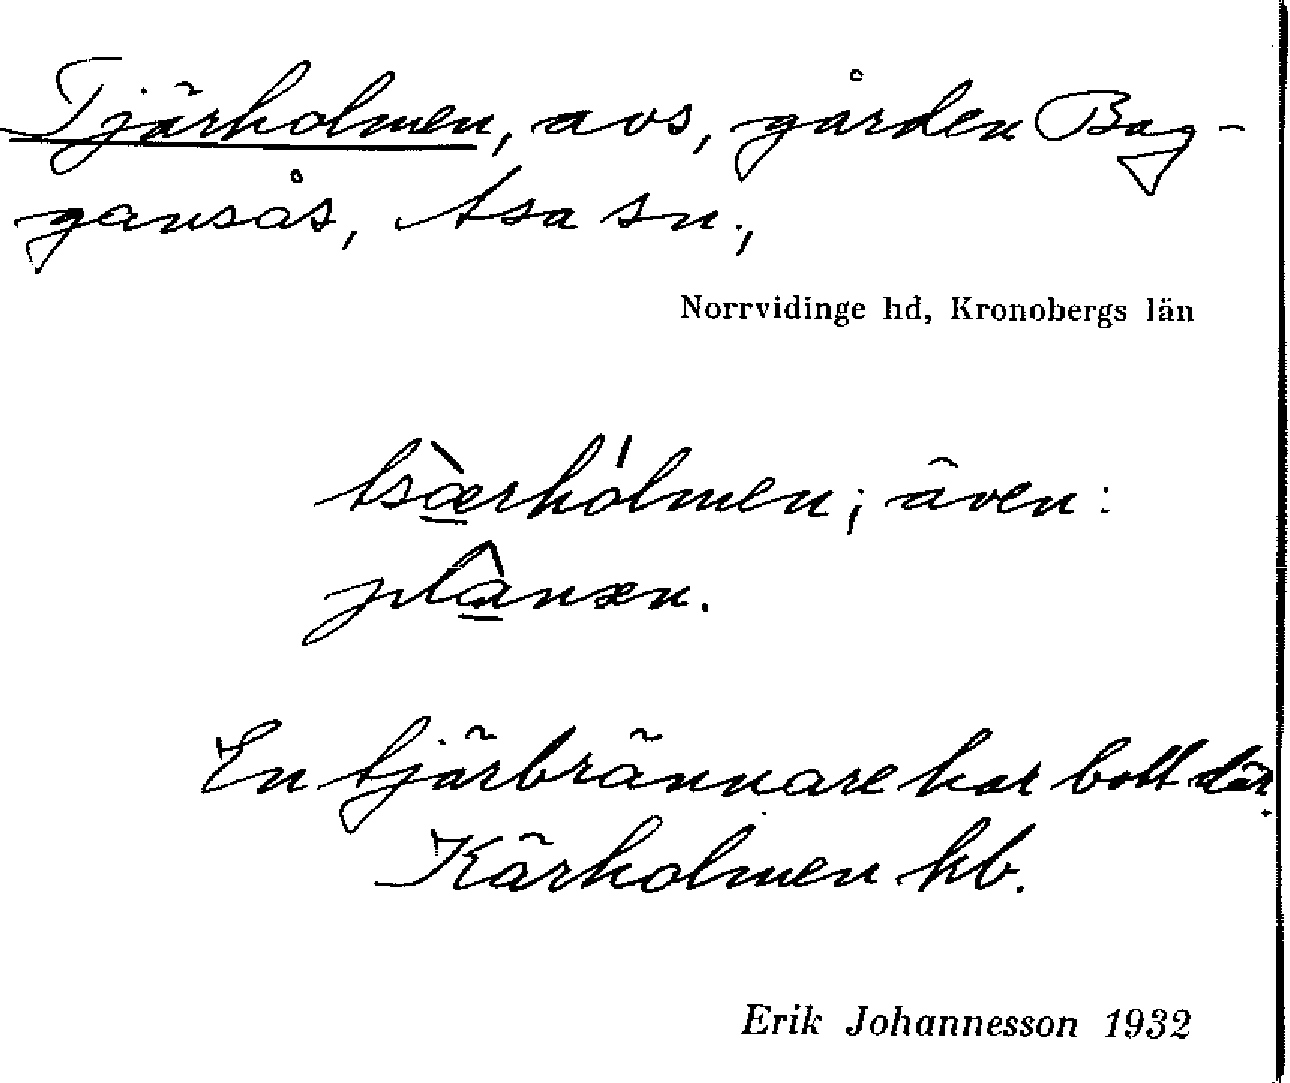 Tjärholmen, avs, gården Bag-
gansås, Asa sn.,
Norrvidinge hd, Kronobergs län
tsæ̀rhólmen; även:
plânsen.
En tjärbrännare har bott där.
Kärholmen kb.
Erik Johannesson 1932